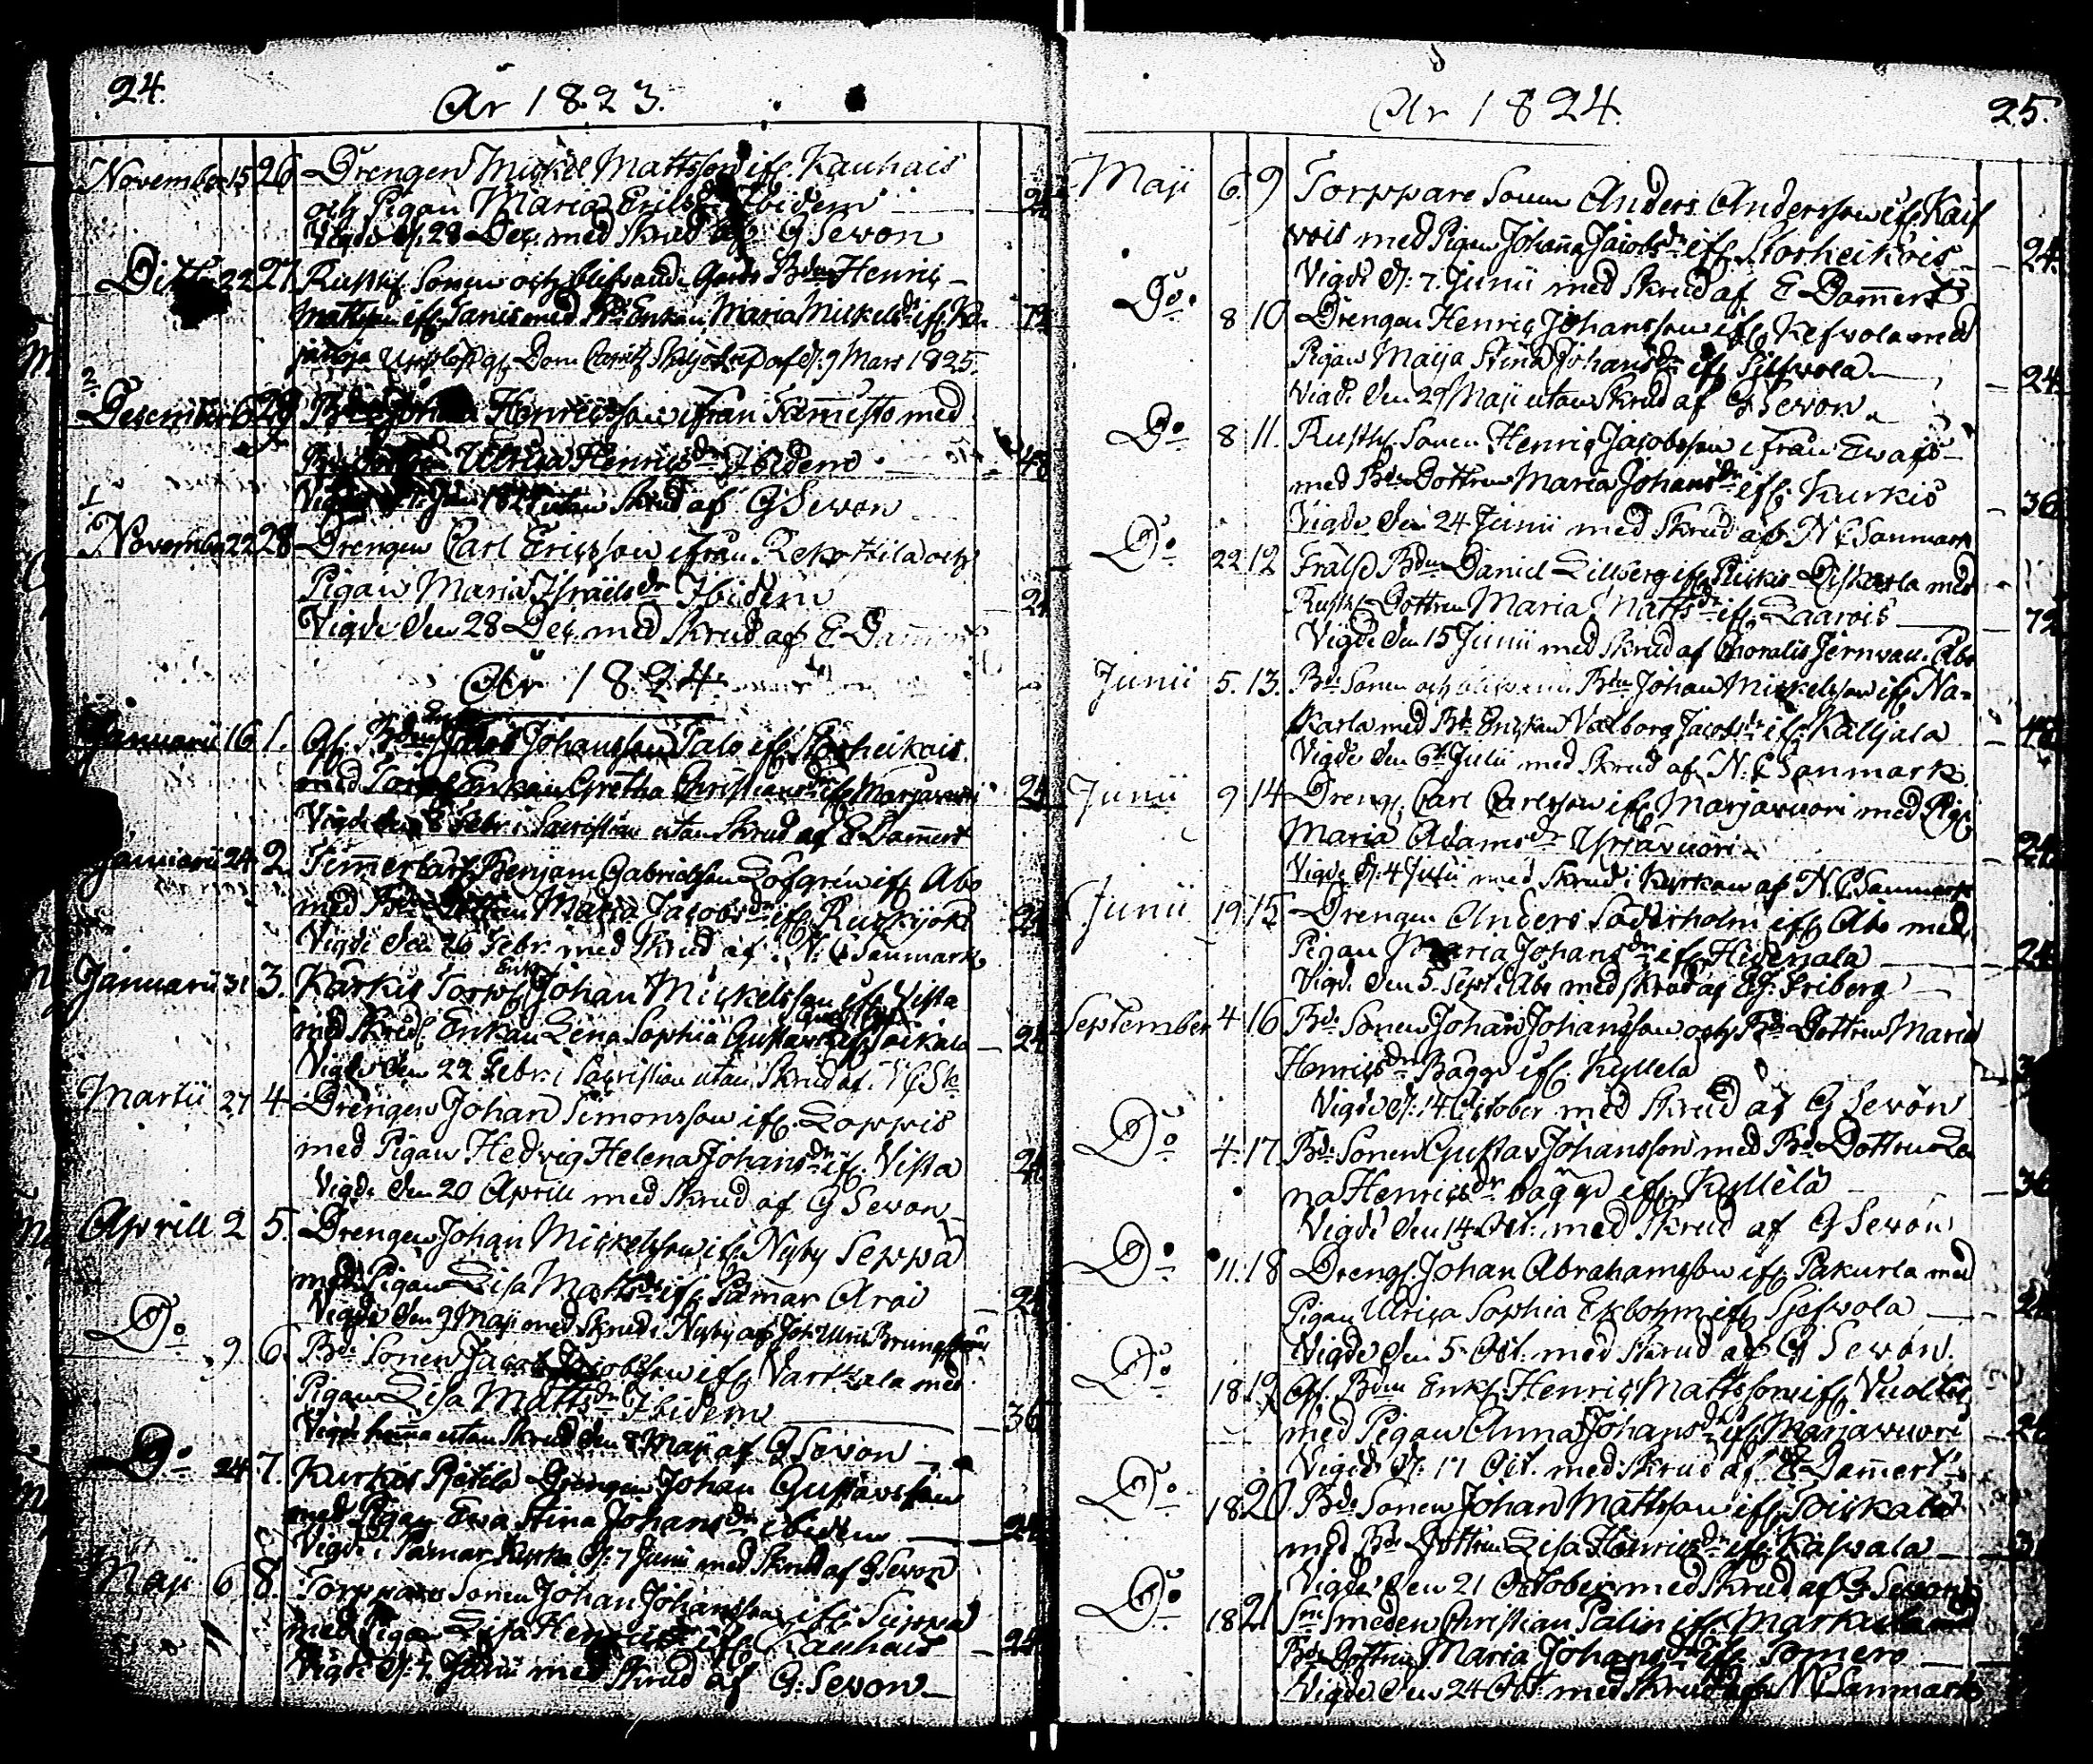 24.
År 1823.
November 15 26 Drengen Mickel Mattsson ifr. Kauhais
och Pigan Maria Ericsdr Ibidem 24
Vigde d. 28 Dec. med Skrud af G Sevon
Ditto 22 27. Rusth. Sonen och blifvande Gards Bdn Henric
Mattsson ifr. Tanis med Bd. Enkan Maria Mickelsdr ifr. 72
Upplöst g. Dom Capitl. Skiljobref af d. 9 Mars 1825.
2.
Desember 6 29 Johan Henricsson ifrån Tammisto med
Ulrica Henricsdr Ibidem 48
Vigde 1 Jan. 1824 utan Skrud af G Sevon
1
November 22 28 Drengen Carl Ericsson ifrån Repo Hila och
Pigan Maria Israelsdr Ibidem 24
Vigde den 28 Dec. med Skrud af E Dammert
År 1824.
Januarii 16 1. Gf. Bdn Enkl. Johansson Palo ifr. Storheikois
med Torp. Enkan Gretha Christiansdr ifr. Marjavuori 24
Vigde den 8 Febr. i Sacristian utan Skrud af E Dammert
Januarii 24 2. Timmerkarl. Benjam Gabrielsson Löfgren ifr. Åbo
med Bd. Dottren Maria Jacobsdr ifr. Ruskijoki 24
Vigde den 26 Febr. med Skrud af N. C Sanmark
Januarii 31 3. Karkis Torp. Enkl. Johan Mickelsson ifr. Vista
med Enkan Lena Sophia Gustavsdr ifr. 24
Vigde den 22 Febr. i Sacristian utan Skrud af N C Sk
Martii 27 4. Drengen Johan Simonsson ifr. Loppis
med Pigan Hedvig Helena Johansdr ifr. Vista 24
Vigde den 20 Aprill med Skrud af G Sevon
Aprill 2 5. Drengen Johan Mickelsson ifr. Nyby Seppä
med Pigan Lisa Mattsdr ifr. Pamar Arvi 24
Vigde den 9 Maji med Skrud i Nyby af Joh. Ulric
Do 9 6. Bd. Sonen Jacob Jacobsson ifr. Vartsala med
Pigan Lisa Mattsdr Ibidem 36
Vigde hemma utan Skrud den 8 Maji af G Sevon
Do 24 7. Kurkis Pietilä Drengen Johan Gustavsson
med Pigan Eva Stina Johansdr ibidem 24
Vigde i Pamar Kyrka d. 7 Junii med Skrud af G Sevon
Maji 6 8. Torppare Sonen Johan Johansson ifr. Seppä
med Pigan Lisa Henricsdr ifr. Kauhais 24
Vigde d. 7. Junii med Skrud af G. Sevon
År 1824.
25.
Maji 6. 9 Torppare Sonen Anders Andersson ifr. Kais
vois med Pigan Johanna Jacobsdr ifr. Storheikois 24
Vigde d. 7. Junii med Skrud af E Dammert
Do 8 10 Drengen Henric Johansson ifr. Kesvola med
Pigan Maija Stina Johansdr ifr. Silsvola 24
Vigde den 29 Maji utan Skrud af G Sevon
Do 8 11. Rusth. Sonen Henric Jacobsson ifrån Evais
med Bds Dottren Maria Johansdr ifr. Kurkis 36
Vigde den 24 Junii med Skrud af N C Sanmark
Do 22 12 Frälse Bdn Daniel Lillberg ifr. med
Rusth. Dottren Maria Mattsdr ifr. Laarois 72
Vigde den 15 Junii med Skrud af Åbo
Junii 5. 13. Bds Sonen och blifvande Bdn Johan Mickelsson ifr. Na-
karla med Bd. Enkan Valborg Jacobsdr ifr. Kaljala 48
Vigde den 6te Julii med Skrud af N. C Sanmark
Junii 9 14 Dreng. Carl Carlsson ifr. Marjavuori med Pig.
Maria Adamsdr Yrjävuori 24
Vigde d. 4 Julii med Skrud i Kyrkan af N. C Sanmark
Junii 19 15 Drengen Anders Söderholm ifr. Åbo med
Pigan Maria Johansdr ifr. Hidenjala 24
Vigde den 5 Sept. i Åbo med skrud af E J. Friberg
September 4 16 Bds Sonen Johan Johansson och Bds Dottren Maria
Henricsdr Bagge ifr. Kyllelä 3
Vigde d. 14 October med Skrud af G Sevon
Do 4. 17. Bds Sonen Gustav Johansson med Bds Dottren Le
na Henricsdr Bagge ifr. Kyllelä 36
Vigde den 14 Oct. med Skrud af G Sevon
Do 11. 18 Dreng. Johan Abrahamsson ifr. Pakurla med
Pigan Ulrica Sophia Ekbohm ifr. 24
Vigde den 5 Oct. med Skrud af G Sevon.
Do 18 19 Gf. Bdn Enkl. Henric Mattsson ifr. Vuoltis
med Pigan Anna Johansdr ifr. Marjavuori 24
Vigde d. 17 Oct. med Skrud af E Dammert
Do 18 20 Bds Sonen Johan Mattsson ifr. Toiskala
med Bds Dottren Lisa Henricsdr ifr. Kasvala 3
Vigde den 21 October med Skrud af G Sevon
Do 18 21 Sn Smeden Christian Salin ifr. Markula med
Bds Dottren Maria Johansdr ifr. Somero
Vigde den 24 Oct. med Skrud af N C Sanmark